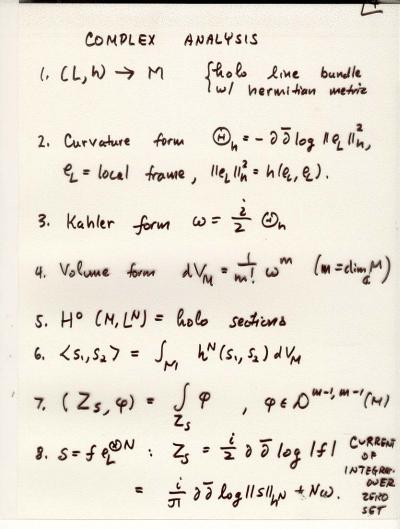 COMPLEX ANALYSIS
1. (L, h) → M { holo line bundle
w/ hermitian metric
2. Curvature form Θ_h = - ∂∂̄ log ‖e_L‖²_h,
e_L = local frame, ‖e_L‖²_h = h(e_L, e_L).
3. Kahler form ω = i/2 Θ_h
4. Volume form dV_M = 1/m! ω^m (m = dim_ℂ M)
5. H⁰ (M, L^N) = holo sections
6. <s₁, s₂> = ∫_M h^N (s₁, s₂) dV_M
7. (Z_s, φ) = ∫_{Z_s} φ , φ ∈ D^{m-1, m-1} (M)
8. s = f e_L^{⊗N} : Z_s = i/2 ∂∂̄ log |f|
= i/π ∂∂̄ log ‖s‖_{h^N} + Nω.
CURRENT
OF
INTEGRAT.
OVER
ZERO
SET